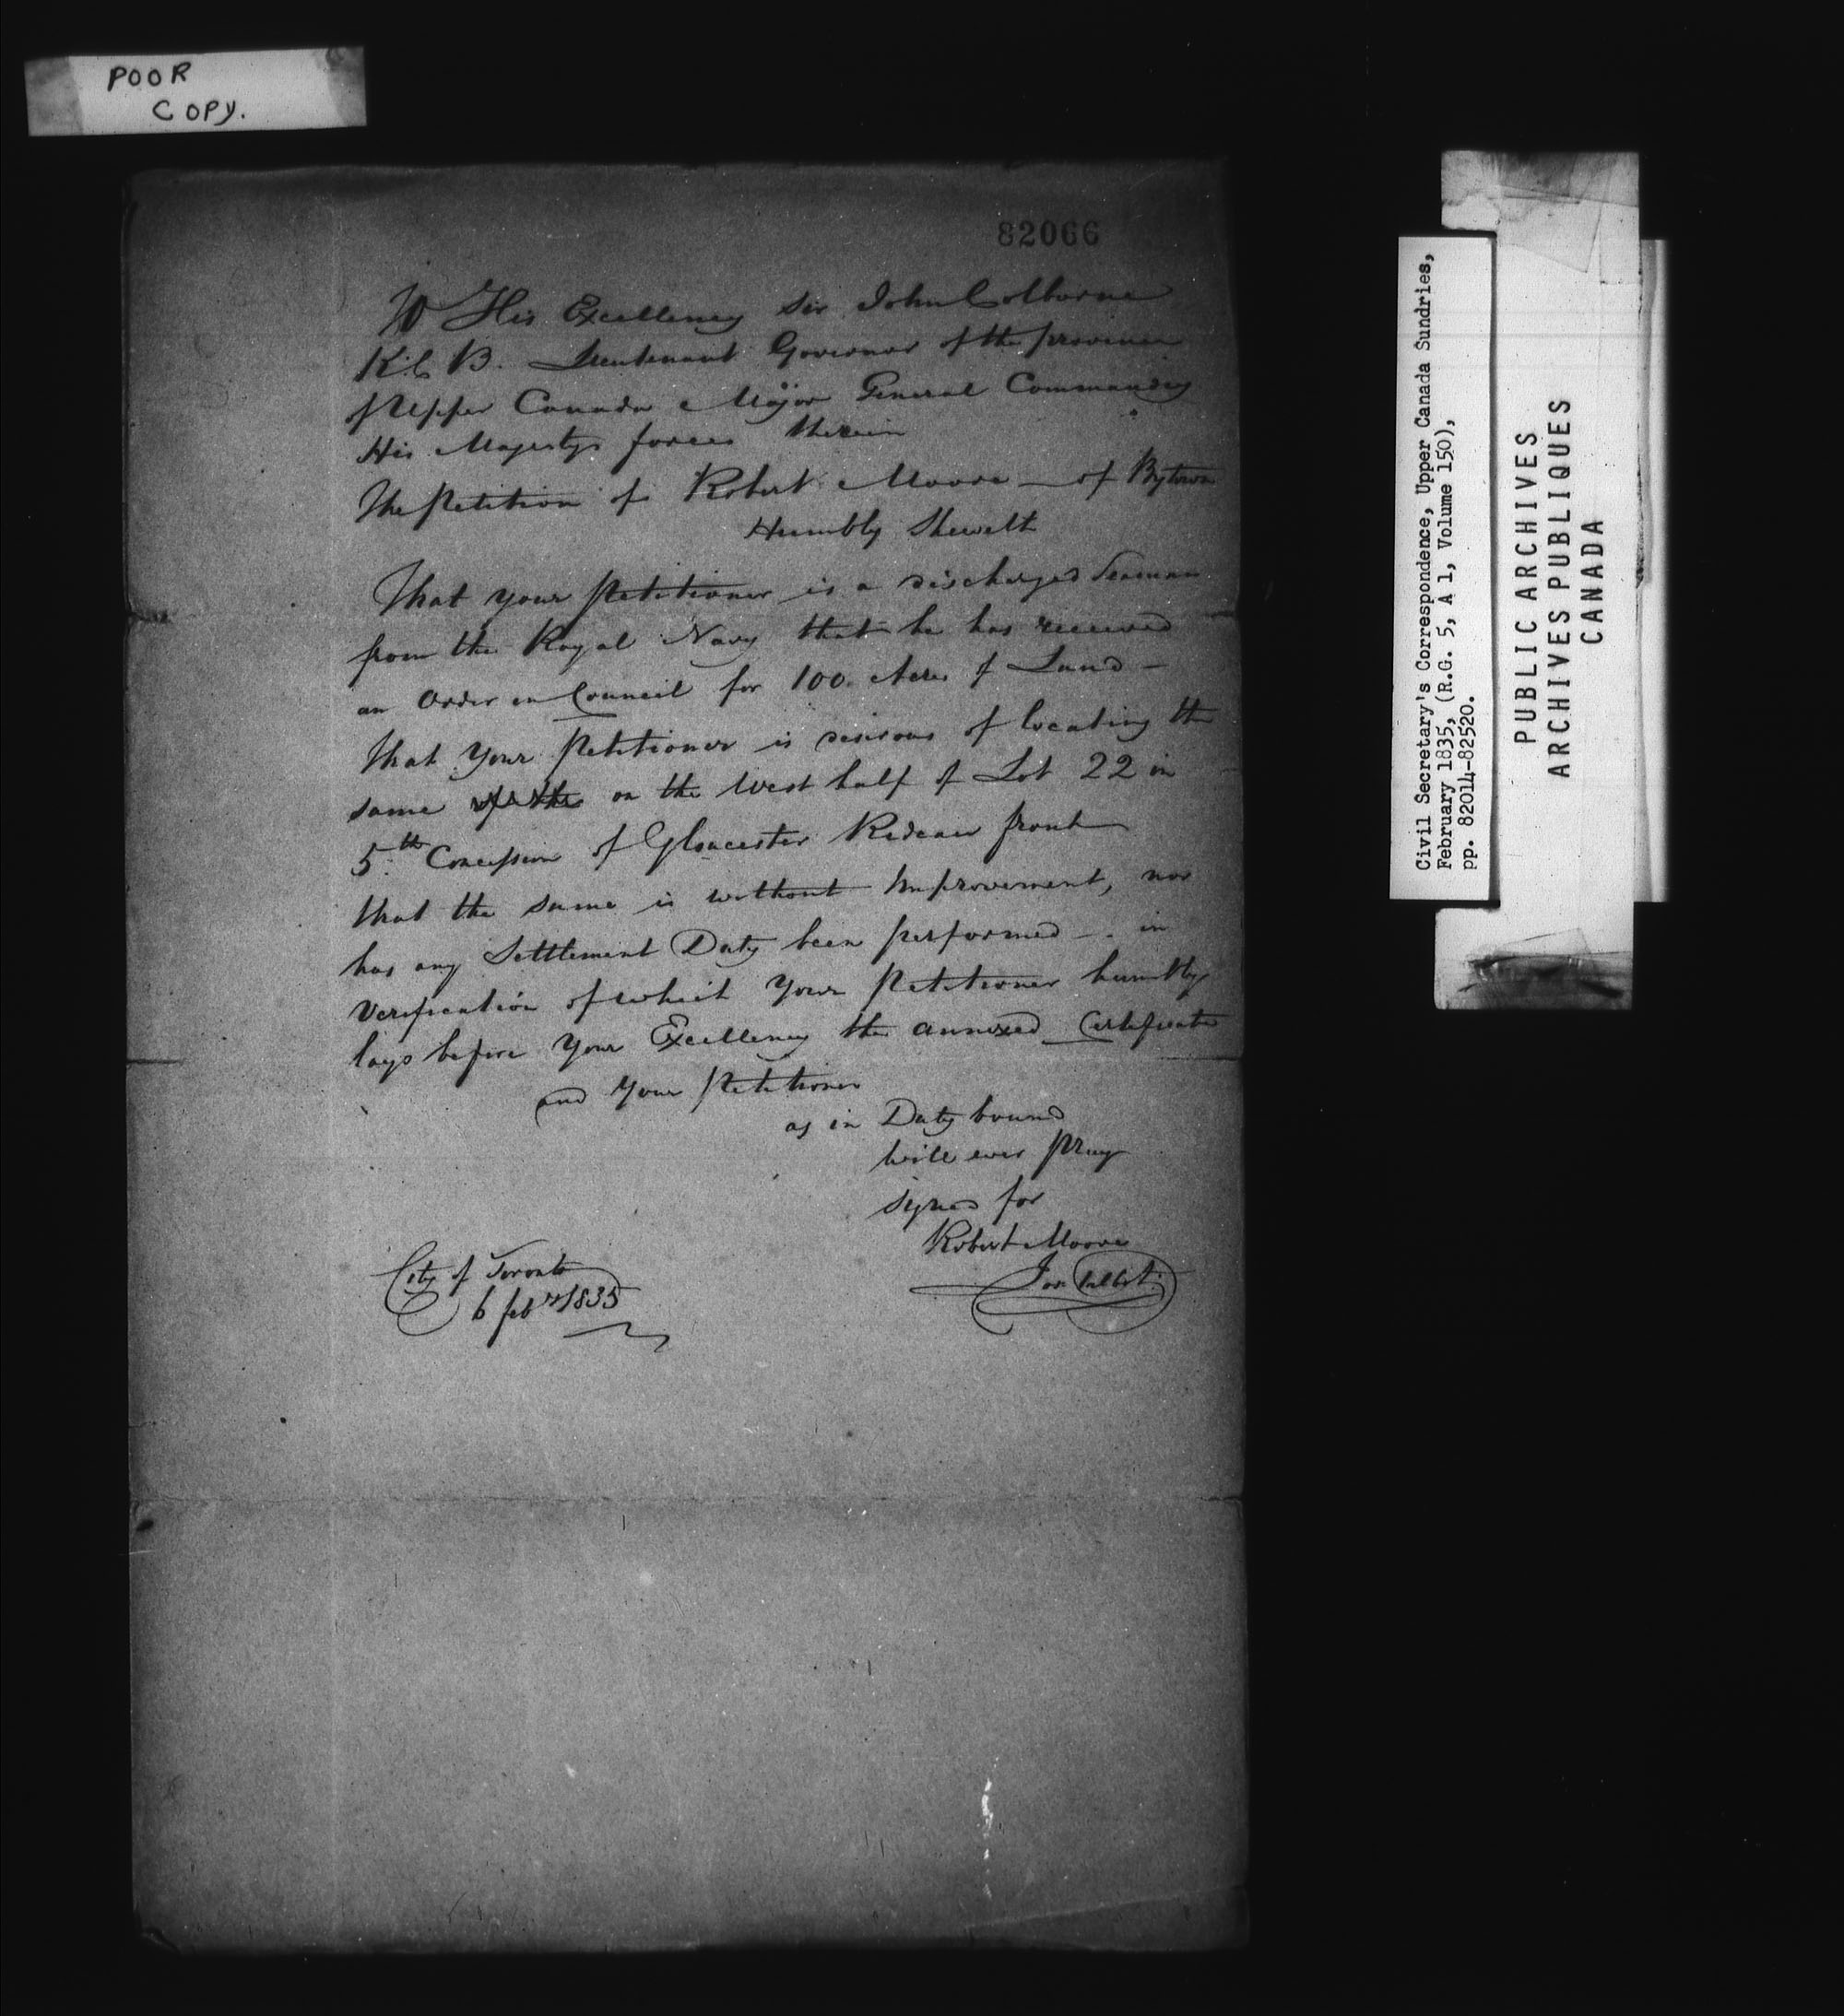 POOR
COPY.
82066
To His Excellency Sir John Colborne
K.C.B. Lieutenant Governor of the province
of Upper Canada Major General Commanding
His Majestys forces therein
The Petition of Robert Moore of Bytown
Humbly Sheweth
That your Petitioner is a discharged Seaman
from the Royal Navy that he has received
an Order in Council for 100 Acres of Land –
that Your Petitioner is desirous of locating the
same on the West half of Lot 22 in
5.th Concession of Gloucester Rideau front
that the same is without Improvement, nor
has any Settlement Duty been performed – in
verification of which Your Petitioner humbly
lays before Your Excellency the annexed Certificate
and Your Petitioner
as in Duty bound
will ever Pray
Signed for
Robert Moore
Talbot
City of Toronto
6 feby 1835
Civil Secretary's Correspondence, Upper Canada Sundries,
February 1835, (R.G. 5, A 1, Volume 150),
pp. 82014-82520.
PUBLIC ARCHIVES
ARCHIVES PUBLIQUES
CANADA